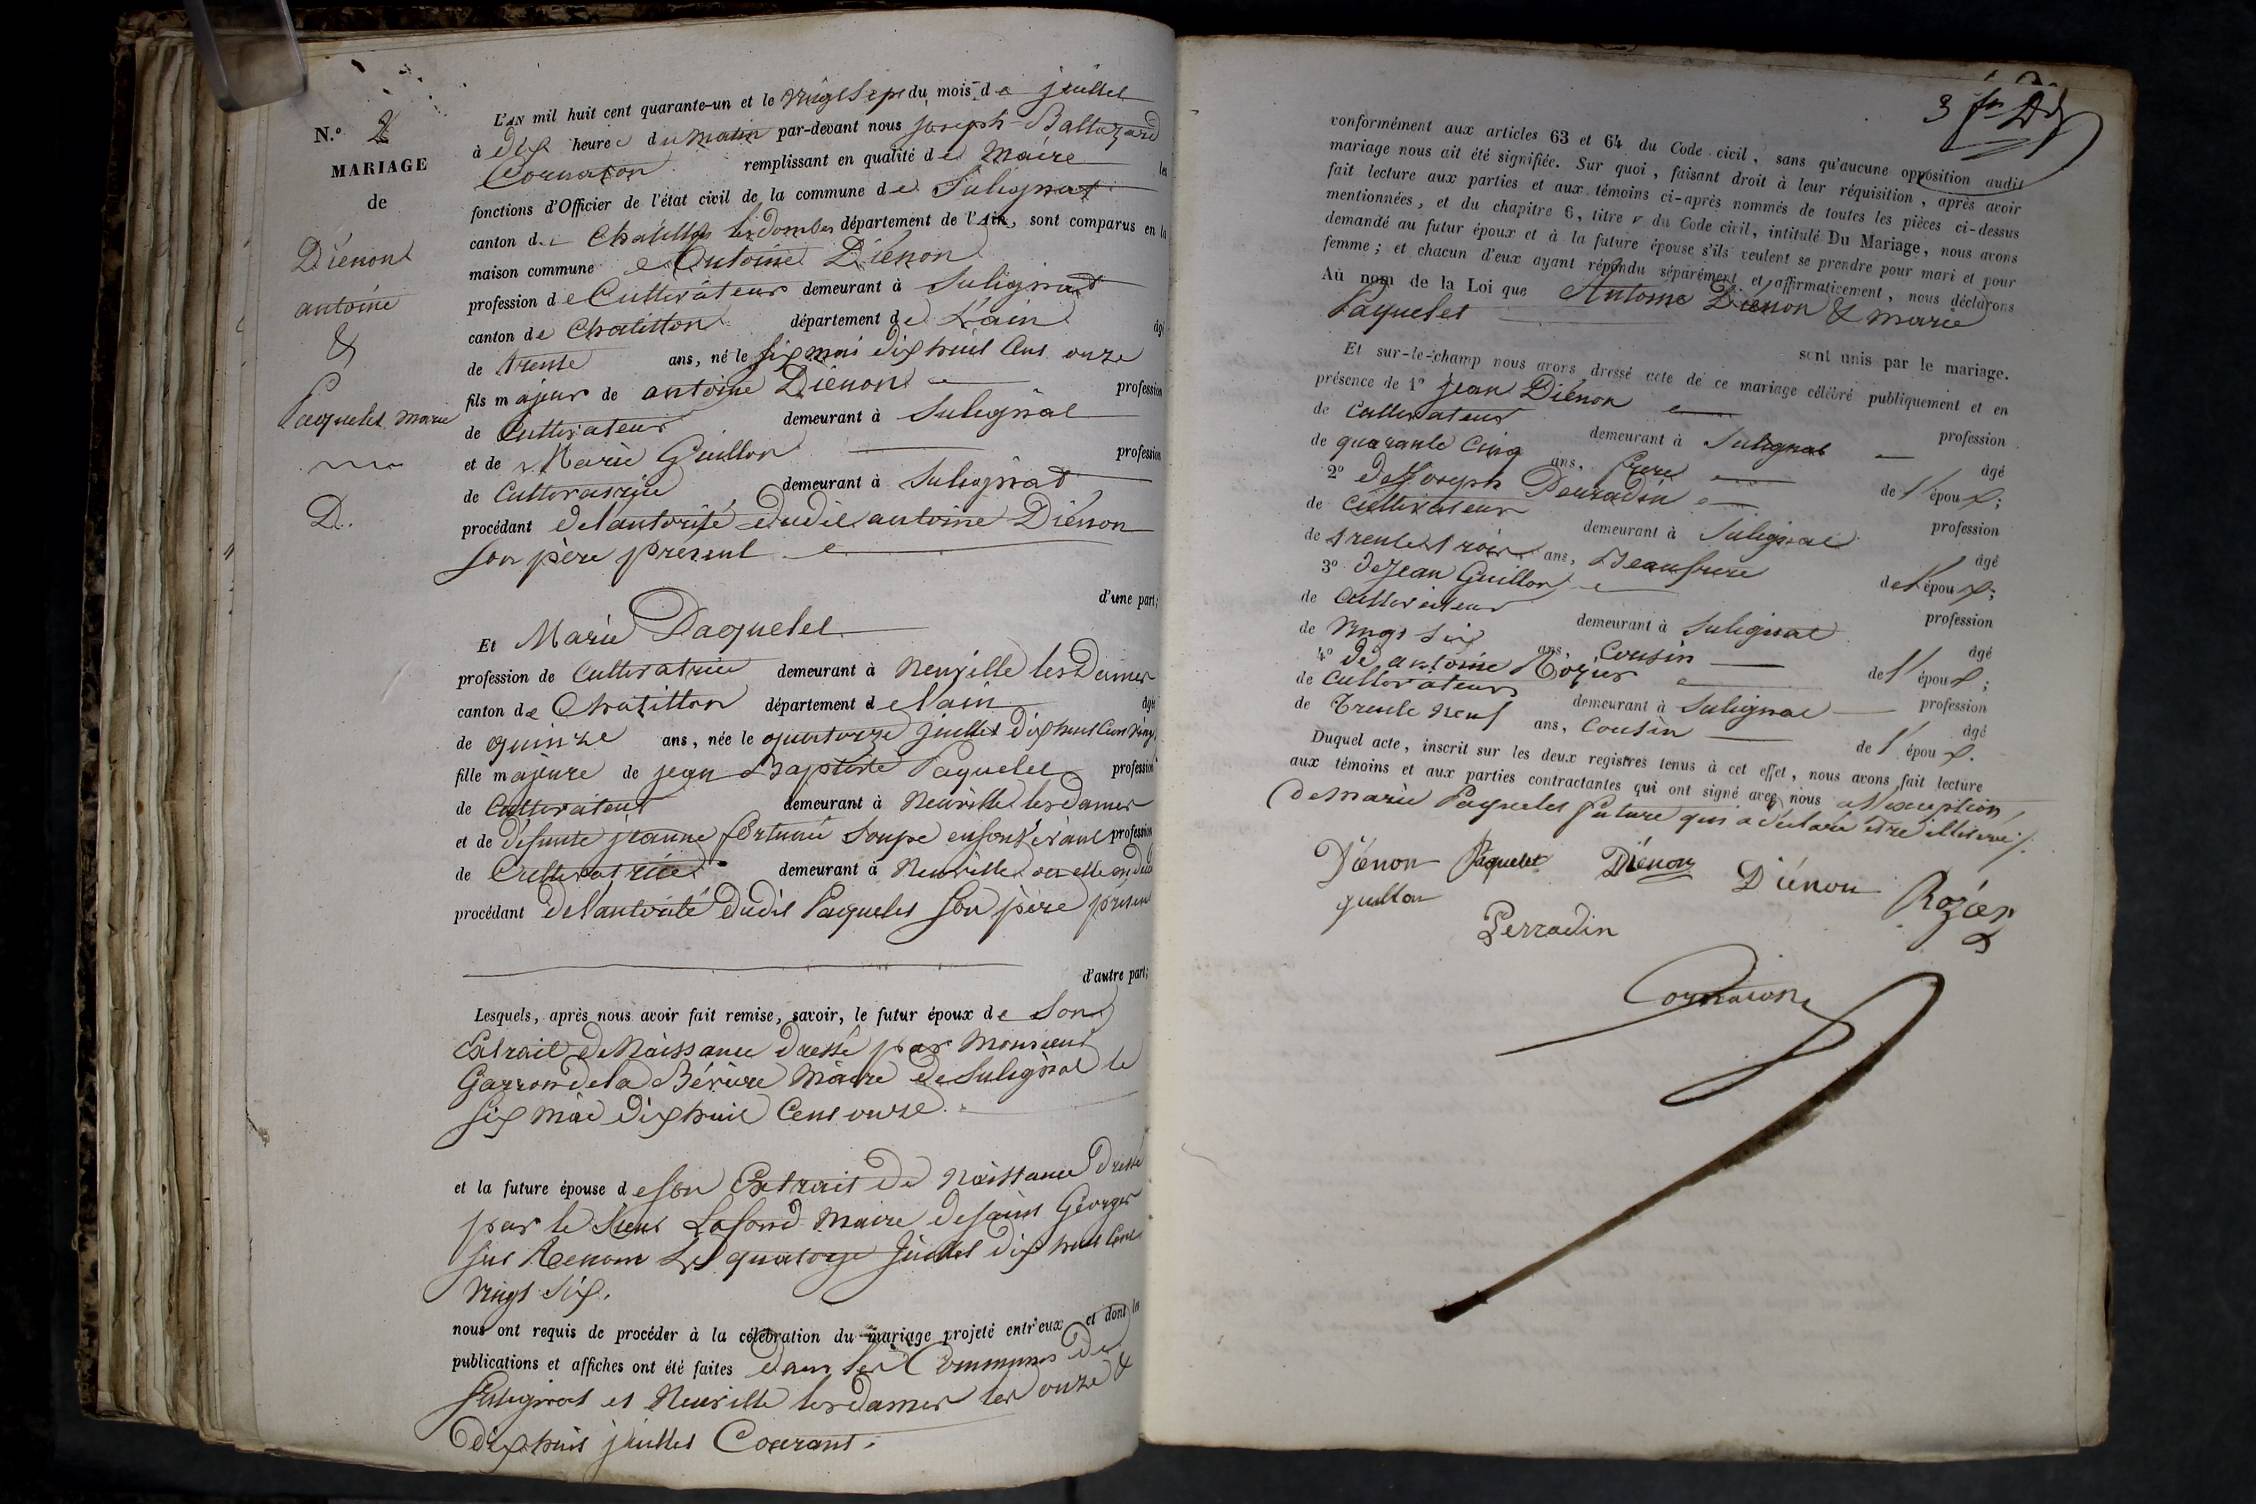 N.o 2
MARIAGE
de
Diénon
antoine
&
Paquelet Marie
D.
L'AN mil huit cent quarante-un et le vingt sept du mois de juillet
à dix heure du matin par-devant nous joseph Baltazard
Cornaton remplissant en qualité de Maire les
fonctions d'Officier de l'état civil de la commune de Sulignat
canton de Chatillon les dombes département de l'Ain, sont comparus en la
maison commune Antoine Diénon
profession de Cultivateur demeurant à Sulignat
canton de Chatillon département de L'ain âgé
de trente ans, né le six mai dix huit Cent onze
fils majeur de antoine Diénon profession
de Cultivateur demeurant à Sulignat
et de Marie Guillon profession
de Cultivatrice demeurant à Sulignat
procédant de l'autorité dudit antoine Diénon
son père présent
d'une part;
Et Marie Paquelet
profession de Cultivatrice demeurant à Neuville les Dames
canton de Chatillon département de l'ain âgée
de quinze ans, née le quatorze juillet dix huit Cent vingt
fille majeure de jean Baptiste Paquelet profession
de Cultivateur demeurant à Neuville les dames
et de défunte jeanne fortunée Soupe en son vivant profession
de Cultivatrice demeurant à Neuville ou elle est
procédant de l'autorité dudit Paquelet son père présent
d'autre part;
Lesquels, après nous avoir fait remise, savoir, le futur époux de Son
Extrait de Naissance dressé par Monsieur
Garron de la Bévière Maire de Sulignat le
six mai dix huit Cent onze.
et la future épouse de son Extrait de Naissance dressé
par le sieur Lafond Maire de saint Georges
sur Renom Le quatorze juillet dix huit Cent
vingt six.
nous ont requis de procéder à la célébration du mariage projeté entr'eux et dont les
publications et affiches ont été faites dans les Communes de
Sulignat et Neuville les dames les onze &
dix huit juillet Courant.
3
conformément aux articles 63 et 64 du Code civil, sans qu'aucune opposition audit
mariage nous ait été signifiée. Sur quoi, faisant droit à leur réquisition, après avoir
fait lecture aux parties et aux témoins ci-après nommés de toutes les pièces ci-dessus
mentionnées, et du chapitre 6, titre v du Code civil, intitulé Du Mariage, nous avons
demandé au futur époux et à la future épouse s'ils veulent se prendre pour mari et pour
femme; et chacun d'eux ayant répondu séparément et affirmativement, nous déclarons
Au nom de la Loi que Antoine Diénon & Marie
Paquelet
sont unis par le mariage.
Et sur-le-champ nous avons dressé acte de ce mariage célébré publiquement et en
présence de 1o jean Diénon profession
de Cultivateur demeurant à Sulignat âgé
de quarante Cinq ans, frere de l'époux;
2o de Joseph Perradin profession
de Cultivateur demeurant à Sulignat âgé
de trente trois ans, Beaufrere de l'époux;
3o de Jean Guillon profession
de Cultivateur demeurant à Sulignat âgé
de vingt six ans, Cousin de l'époux;
4o de antoine Rozier profession
de Cultivateur demeurant à Sulignat âgé
de Trente neuf ans, Cousin de l'époux.
Duquel acte, inscrit sur les deux registres tenus à cet effet, nous avons fait lecture
aux témoins et aux parties contractantes qui ont signé avec nous a l'exception
de Marie Paquelet future qui a déclaré être illitérée.
Diénon Paquelet Diénon Diénon Rozier
guillon
Perradin
Cornaton